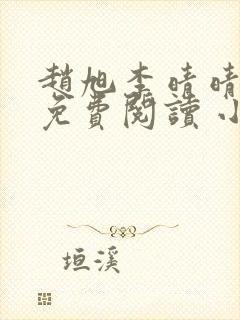 趙旭李晴晴
免費閱讀小
垣溪